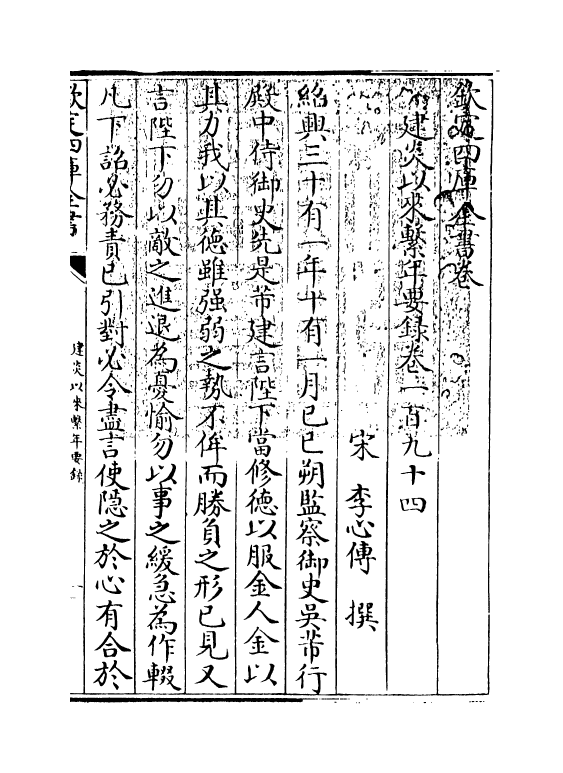 欽定四庫全書卷
建炎以來繫年要錄卷一百九十四
宋 李心傳 撰
紹興三十有一年十有一月己巳朔監察御史吳芾行
殿中侍御史先是芾建言陛下當修德以服金人金以
其力我以其德雖强弱之勢不侔而勝負之形已見又
言陛下勿以敵之進退為憂愉勿以事之緩急為作輟
凡下詔必務責已引對必令盡言使隱之於心有合於
欽定四庫全書
建炎以來繫年要錄